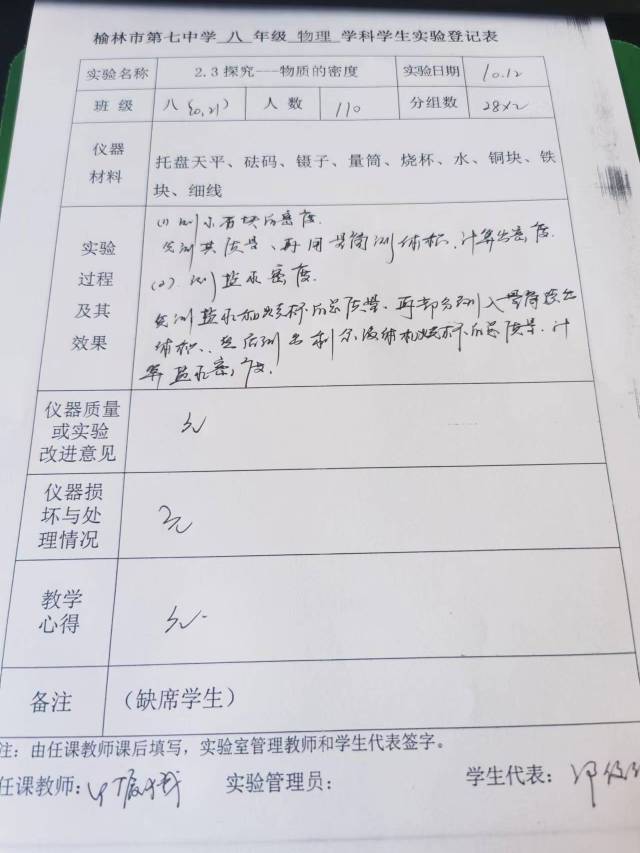 榆林市第七中学 八 年级 物理 学科学生实验登记表
实验名称 2.3 探究---物质的密度 实验日期 10.12
班 级 八(20,21) 人 数 110 分组数 28×2
仪器
材料
托盘天平、砝码、镊子、量筒、烧杯、水、铜块、铁
块、细线
实验
过程
及其
效果
(1) 测小石块的密度.
先测其质量、再用量筒测体积.计算出密度.
(2) 测盐水密度.
先测盐水和烧杯的总质量、再部分倒入量筒读出
体积、然后测出剩余液体和烧杯的总质量.计
算盐水密度.
仪器质量
或实验
改进意见
无
仪器损
坏与处
理情况
无
教学
心得
无
备注 (缺席学生)
注：由任课教师课后填写，实验室管理教师和学生代表签字。
任课教师: 实验管理员： 学生代表：